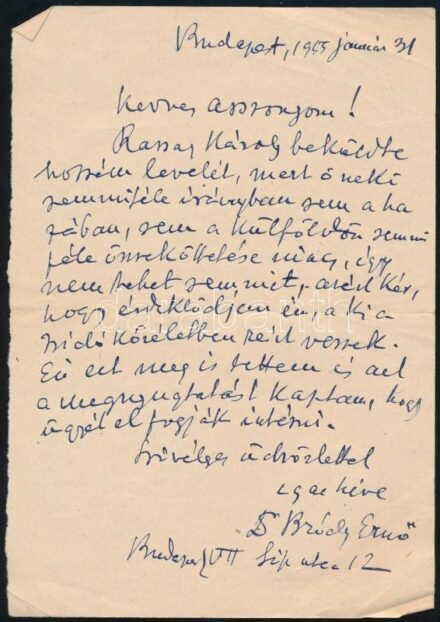 Budapest, 1955 január 31
Kedves asszonyom!
Rassay Károly beküldte
hozzám levelét, mert ő neki
semmiféle irányban sem a ha
zában, sem a külföldön semmi
féle összeköttetése nincs, így
nem tehet semmit, azért kér,
hogy érdeklődjem én, a ki a
zsidó közéletben részt veszek.
Én ezt meg is tettem és azt
a megnyugtatást kaptam, hogy
ügyét el fogják intézni.
Szivélyes üdvözlettel
igaz híve
Dr Bródy Ernő
Budapest VII Síp utca 12
darabanth